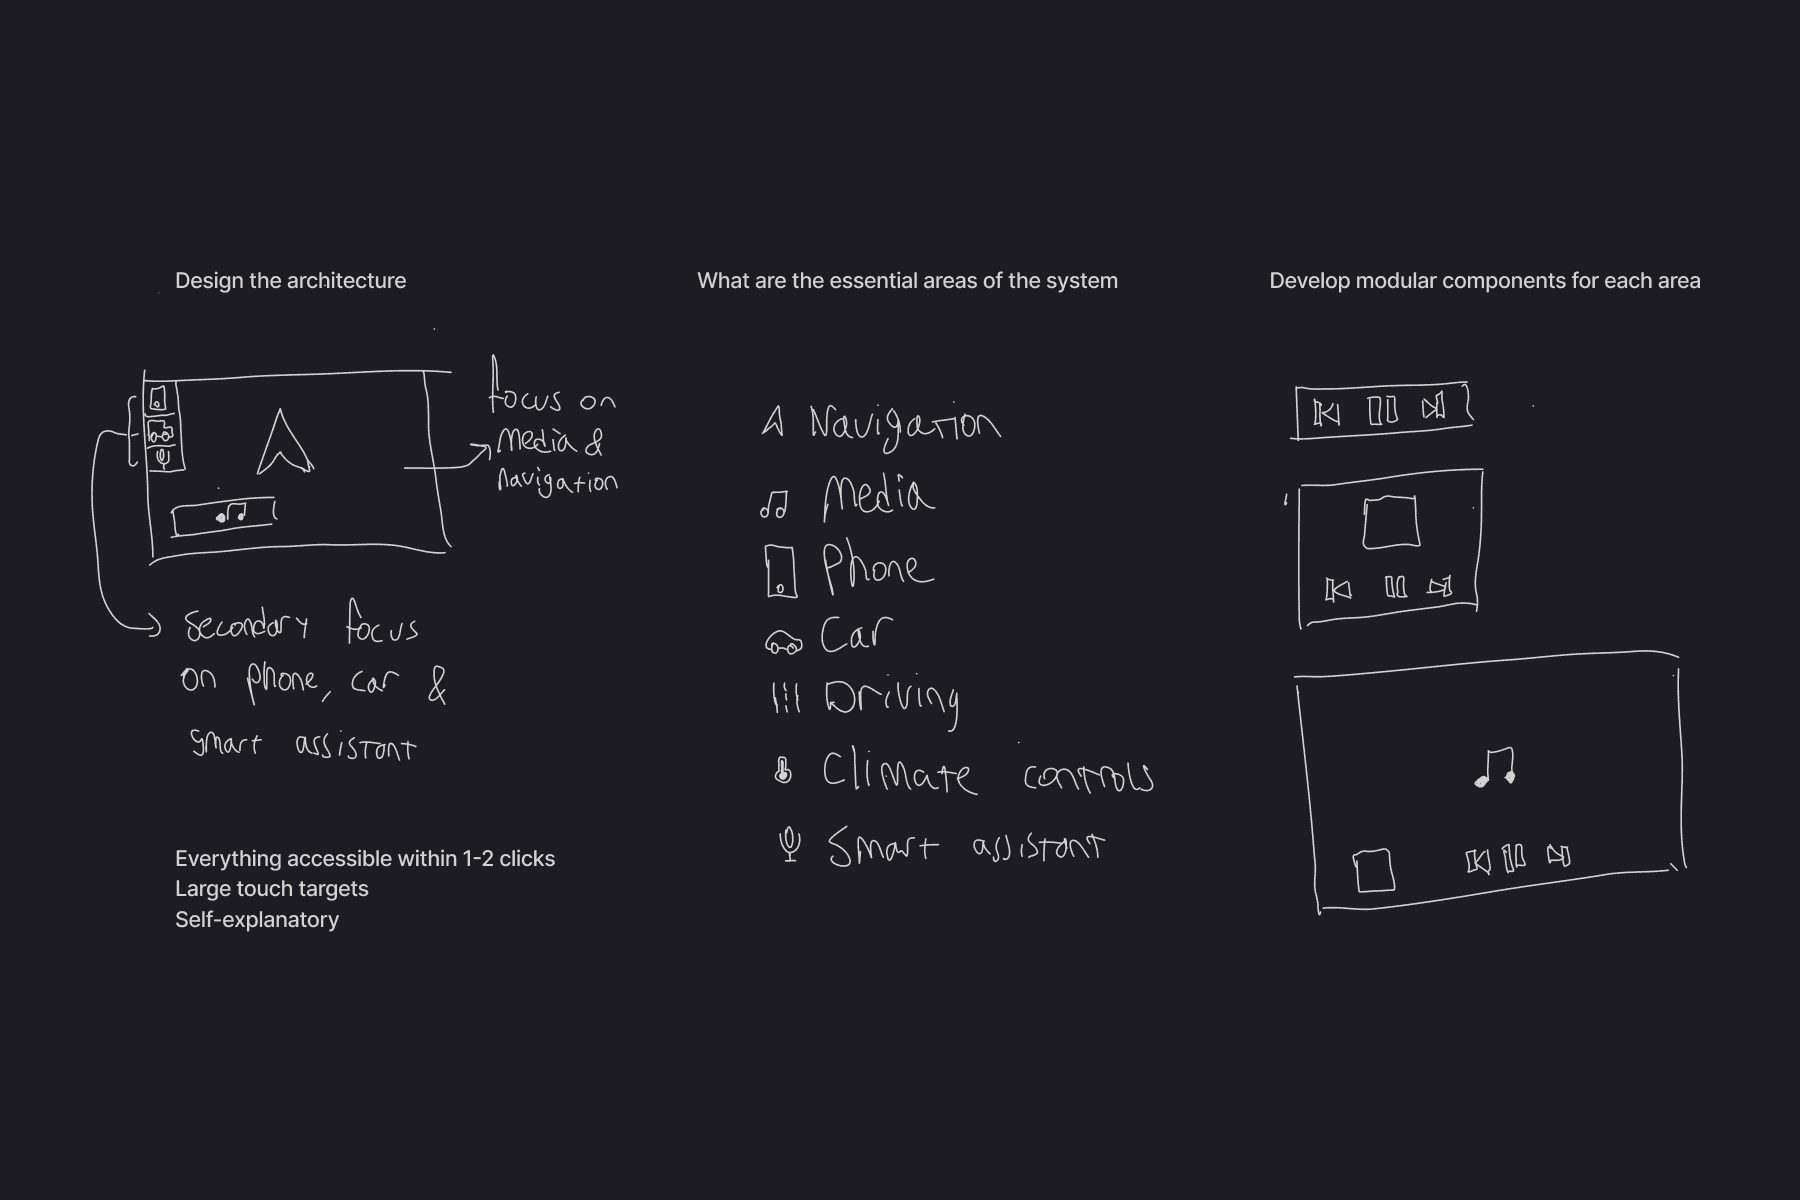 Design the architecture
focus on
media &
navigation
secondary focus
on phone, car &
smart assistant
Everything accessible within 1-2 clicks
Large touch targets
Self-explanatory
What are the essential areas of the system
Navigation
Media
Phone
Car
Driving
Climate controls
Smart assistant
Develop modular components for each area